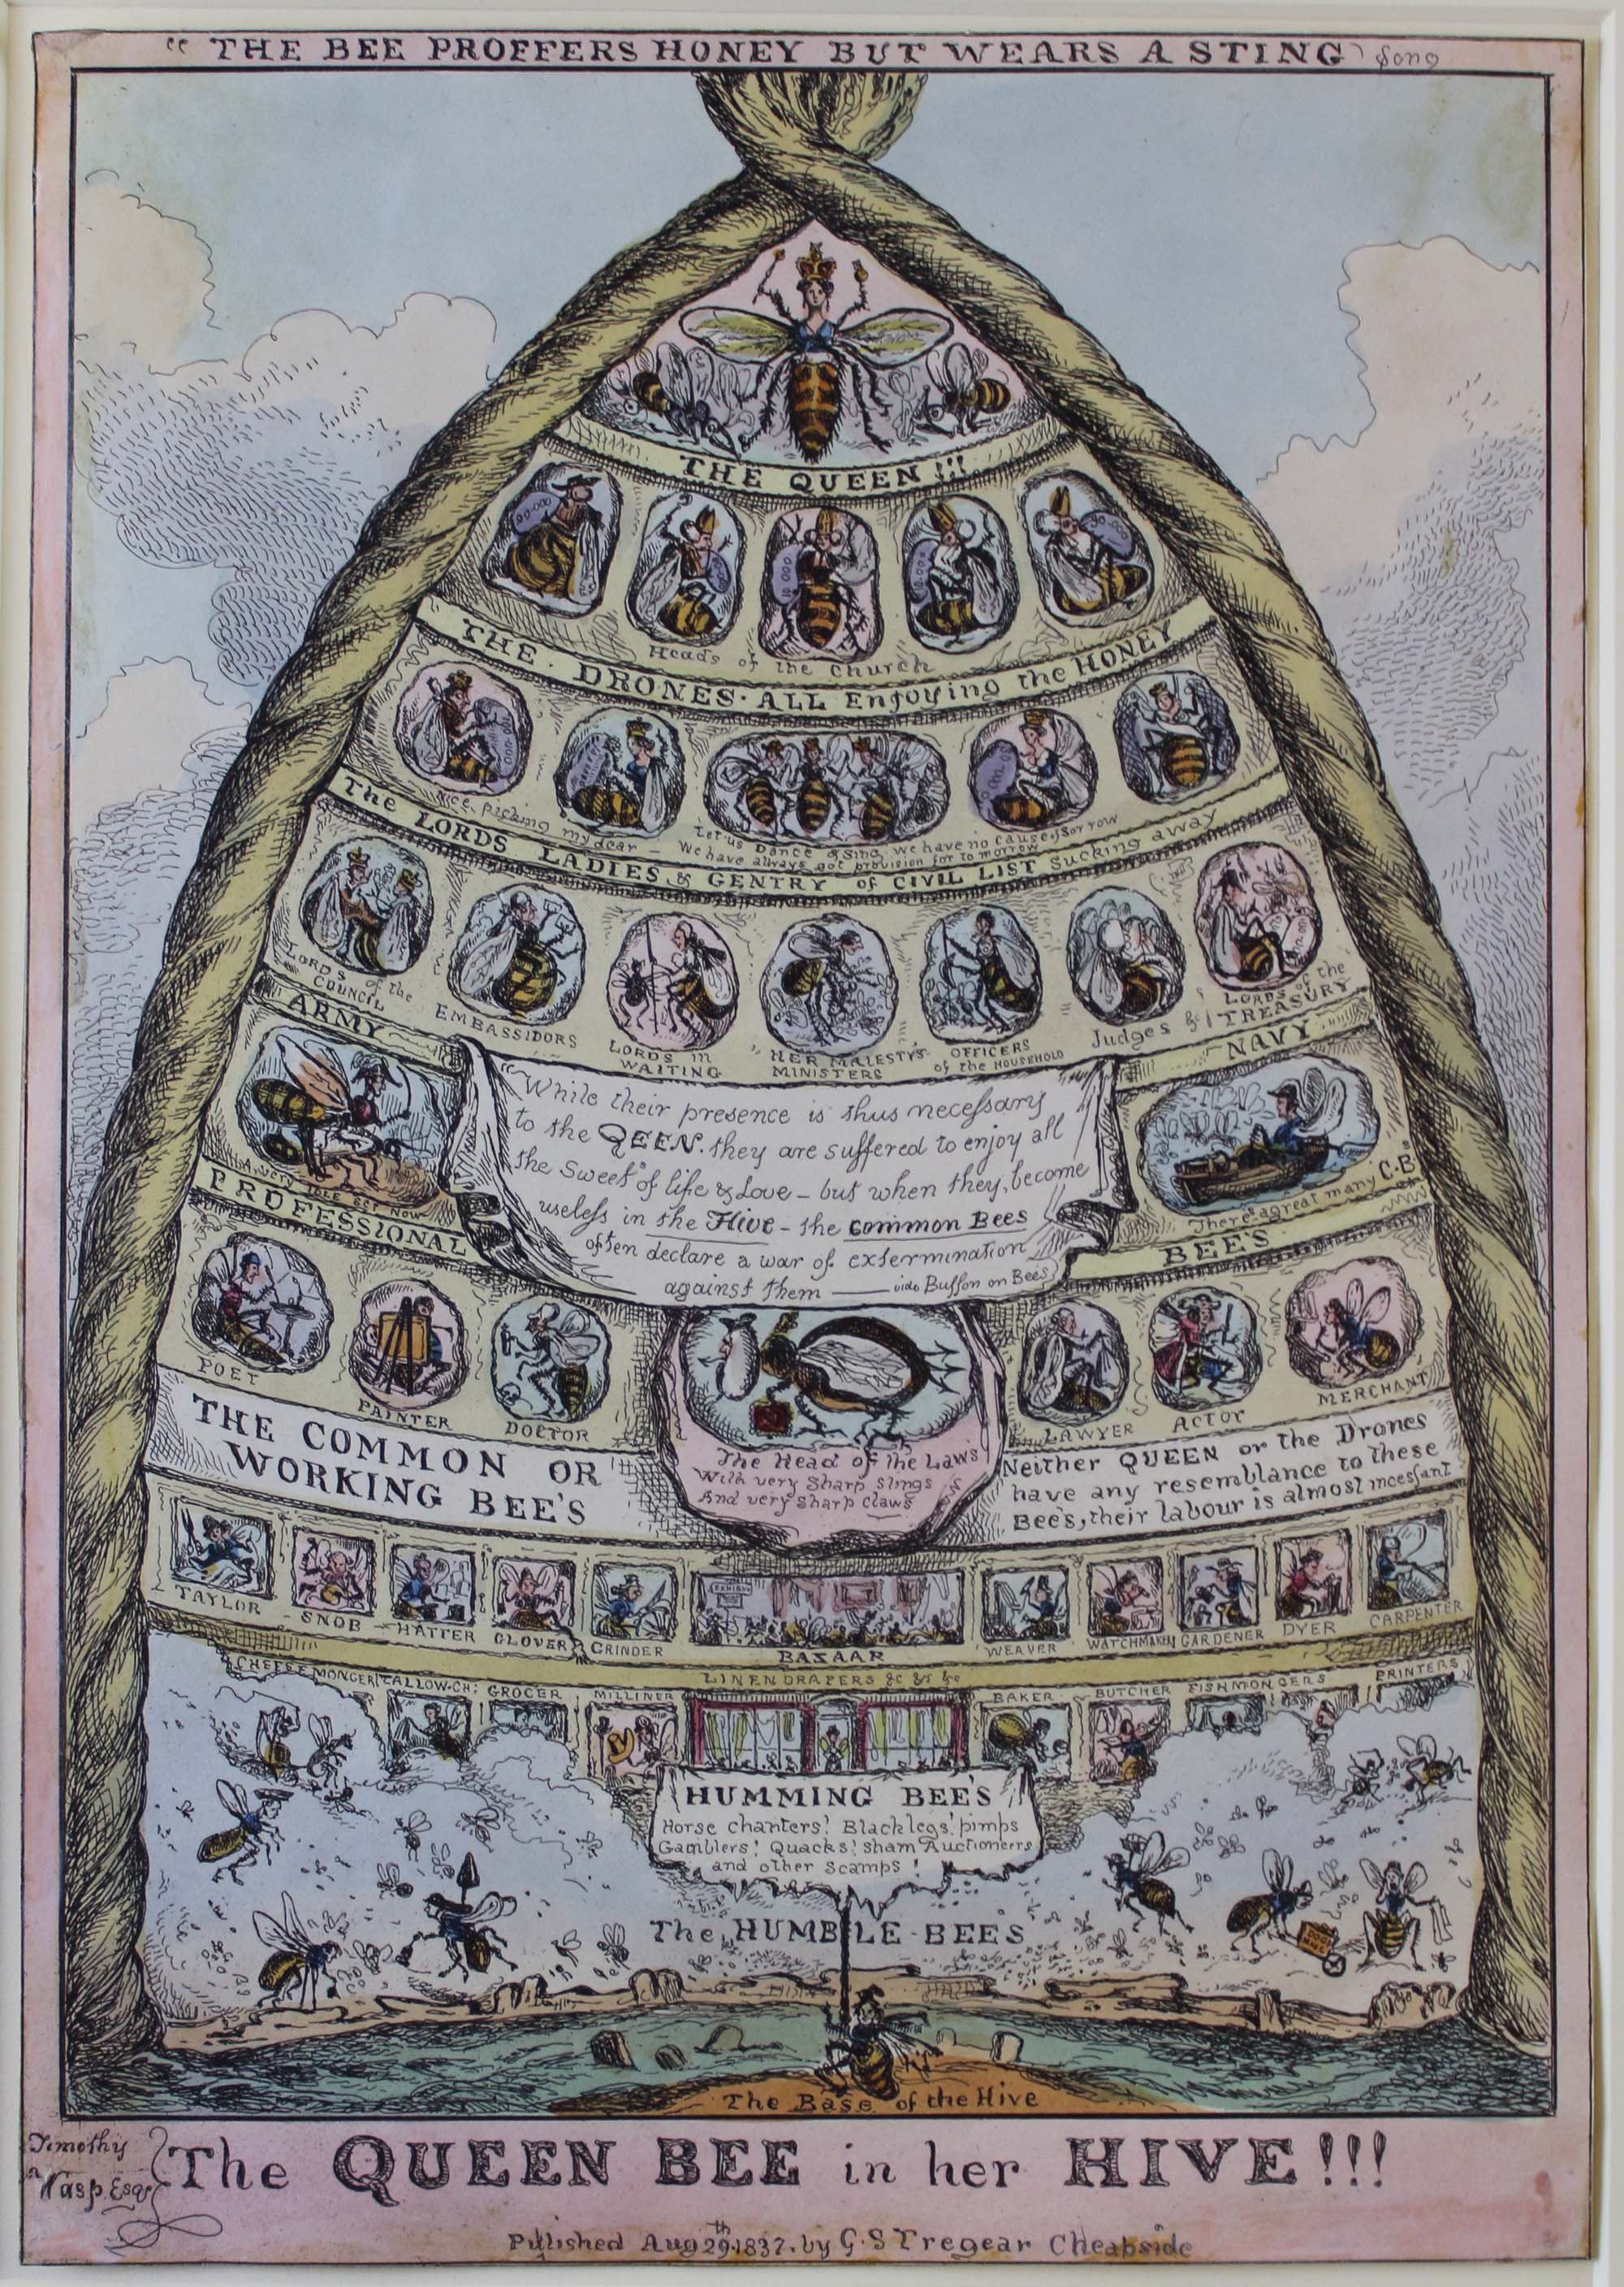 “ THE BEE PROFFERS HONEY BUT WEARS A STING Song
THE QUEEN !!!
Heads of the Church
THE DRONES. ALL Enjoying the HONEY
Nice picking my dear —
Let us Dance & Sing, we have no cause for sorrow
We have always got provision for to morrow
The LORDS LADIES & GENTRY of CIVIL LIST sucking away
LORDS of the COUNCIL
EMBASSIDORS
LORDS in WAITING
HER MAJESTY'S MINISTERS
OFFICERS of the HOUSEHOLD
Judges &
LORDS of the TREASURY
ARMY
NAVY
A very idle set now
There a great many C.B
“While their presence is thus necessary
to the QEEN. they are suffered to enjoy all
the sweets of life & Love – but when they, become
useless in the Hive – the common Bees
often declare a war of extermination
against them —— vide Buffon on Bees
PROFESSIONAL
BEE'S
POET
PAINTER
DOCTOR
LAWYER
ACTOR
MERCHANT
The Head of the Laws
With very Sharp stings
And very sharp claws
THE COMMON OR
WORKING BEE'S
Neither QUEEN or the Drones
have any resemblance to these
Bee's, their labour is almost incessant
TAYLOR
SNOB
HATTER
GLOVER
GRINDER
BAZAAR
WEAVER
WATCHMAKER
GARDENER
DYER
CARPENTER
CHEESEMONGER
TALLOW-CH:
GROCER
MILLINER
LINEN DRAPERS &c &c &c
BAKER
BUTCHER
FISHMONGERS
PRINTERS
HUMMING BEE'S
Horse chanters! Blacklegs! pimps
Gamblers! Quacks! sham Auctioneers
and other Scamps !
The HUMBLE-BEES
DOGS MEAT
The Base of the Hive
Timothy
Wasp. Esqr
The QUEEN BEE in her HIVE!!!
Published Aug 29th 1837. by G. S Tregear Cheapside